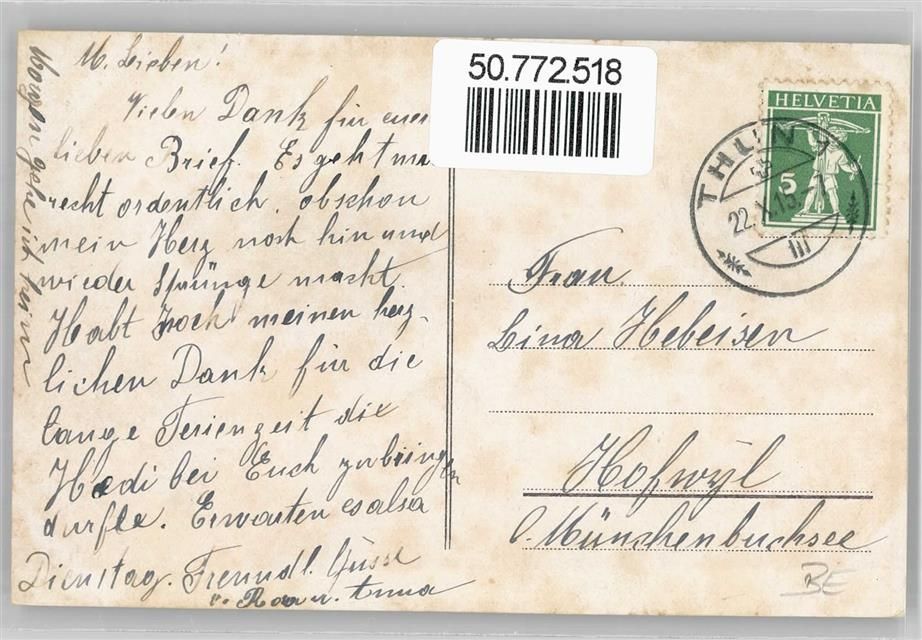 M. Lieben!
Vielen Dank für euer
lieben Brief. Es geht mir
recht ordentlich, obschon
mein Herz noch hin und
wieder Sprünge macht.
Habt noch meinen herz-
lichen Dank für die
lange Ferienzeit die
Hedi bei Euch zubringen
durfte. Erwarten es also
Dienstag. Freundl. Grüsse
v. Anna
Morgen gehe ich heim
50.772.518
HELVETIA
5
THUN
22.X.15
III
Frau
Lina Hebeisen
Hofwyl
b. Münchenbuchsee
BE